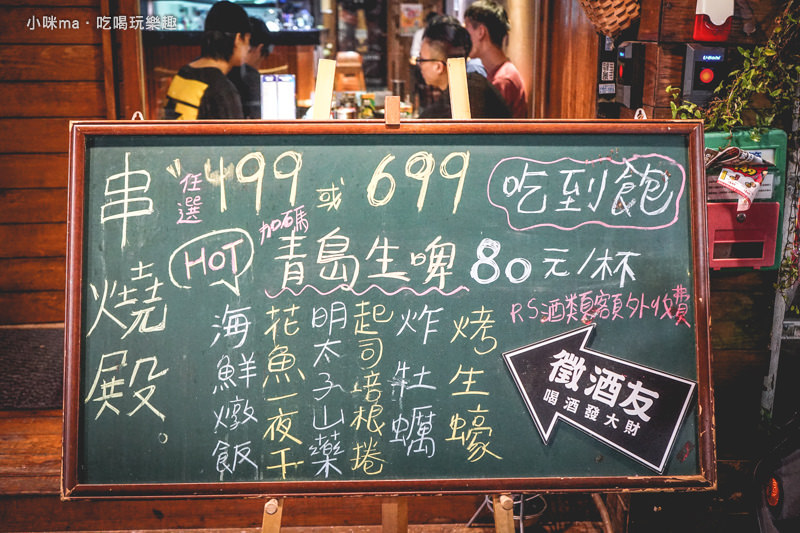 小咪ma·吃喝玩樂趣
串燒殿。
任選 499 或 699 吃到飽
HOT 加碼 青島生啤 80元/杯
PS酒類額外收費
海鮮燉飯
花魚一夜干
明太子山藥
起司培根捲
炸牡蠣
烤生蠔
徵酒友
喝酒發大財